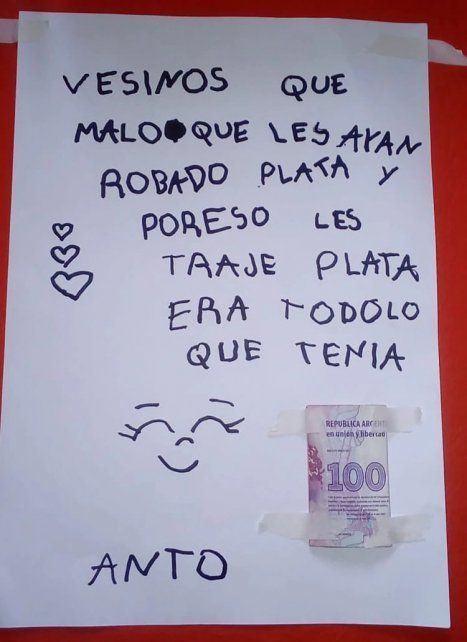 VESINOS QUE
MALO QUE LES AYAN
ROBADO PLATA Y
PORESO LES
TRAJE PLATA
ERA TODOLO
QUE TENIA
REPUBLICA ARGENT
en unión y libertad
100
ANTO